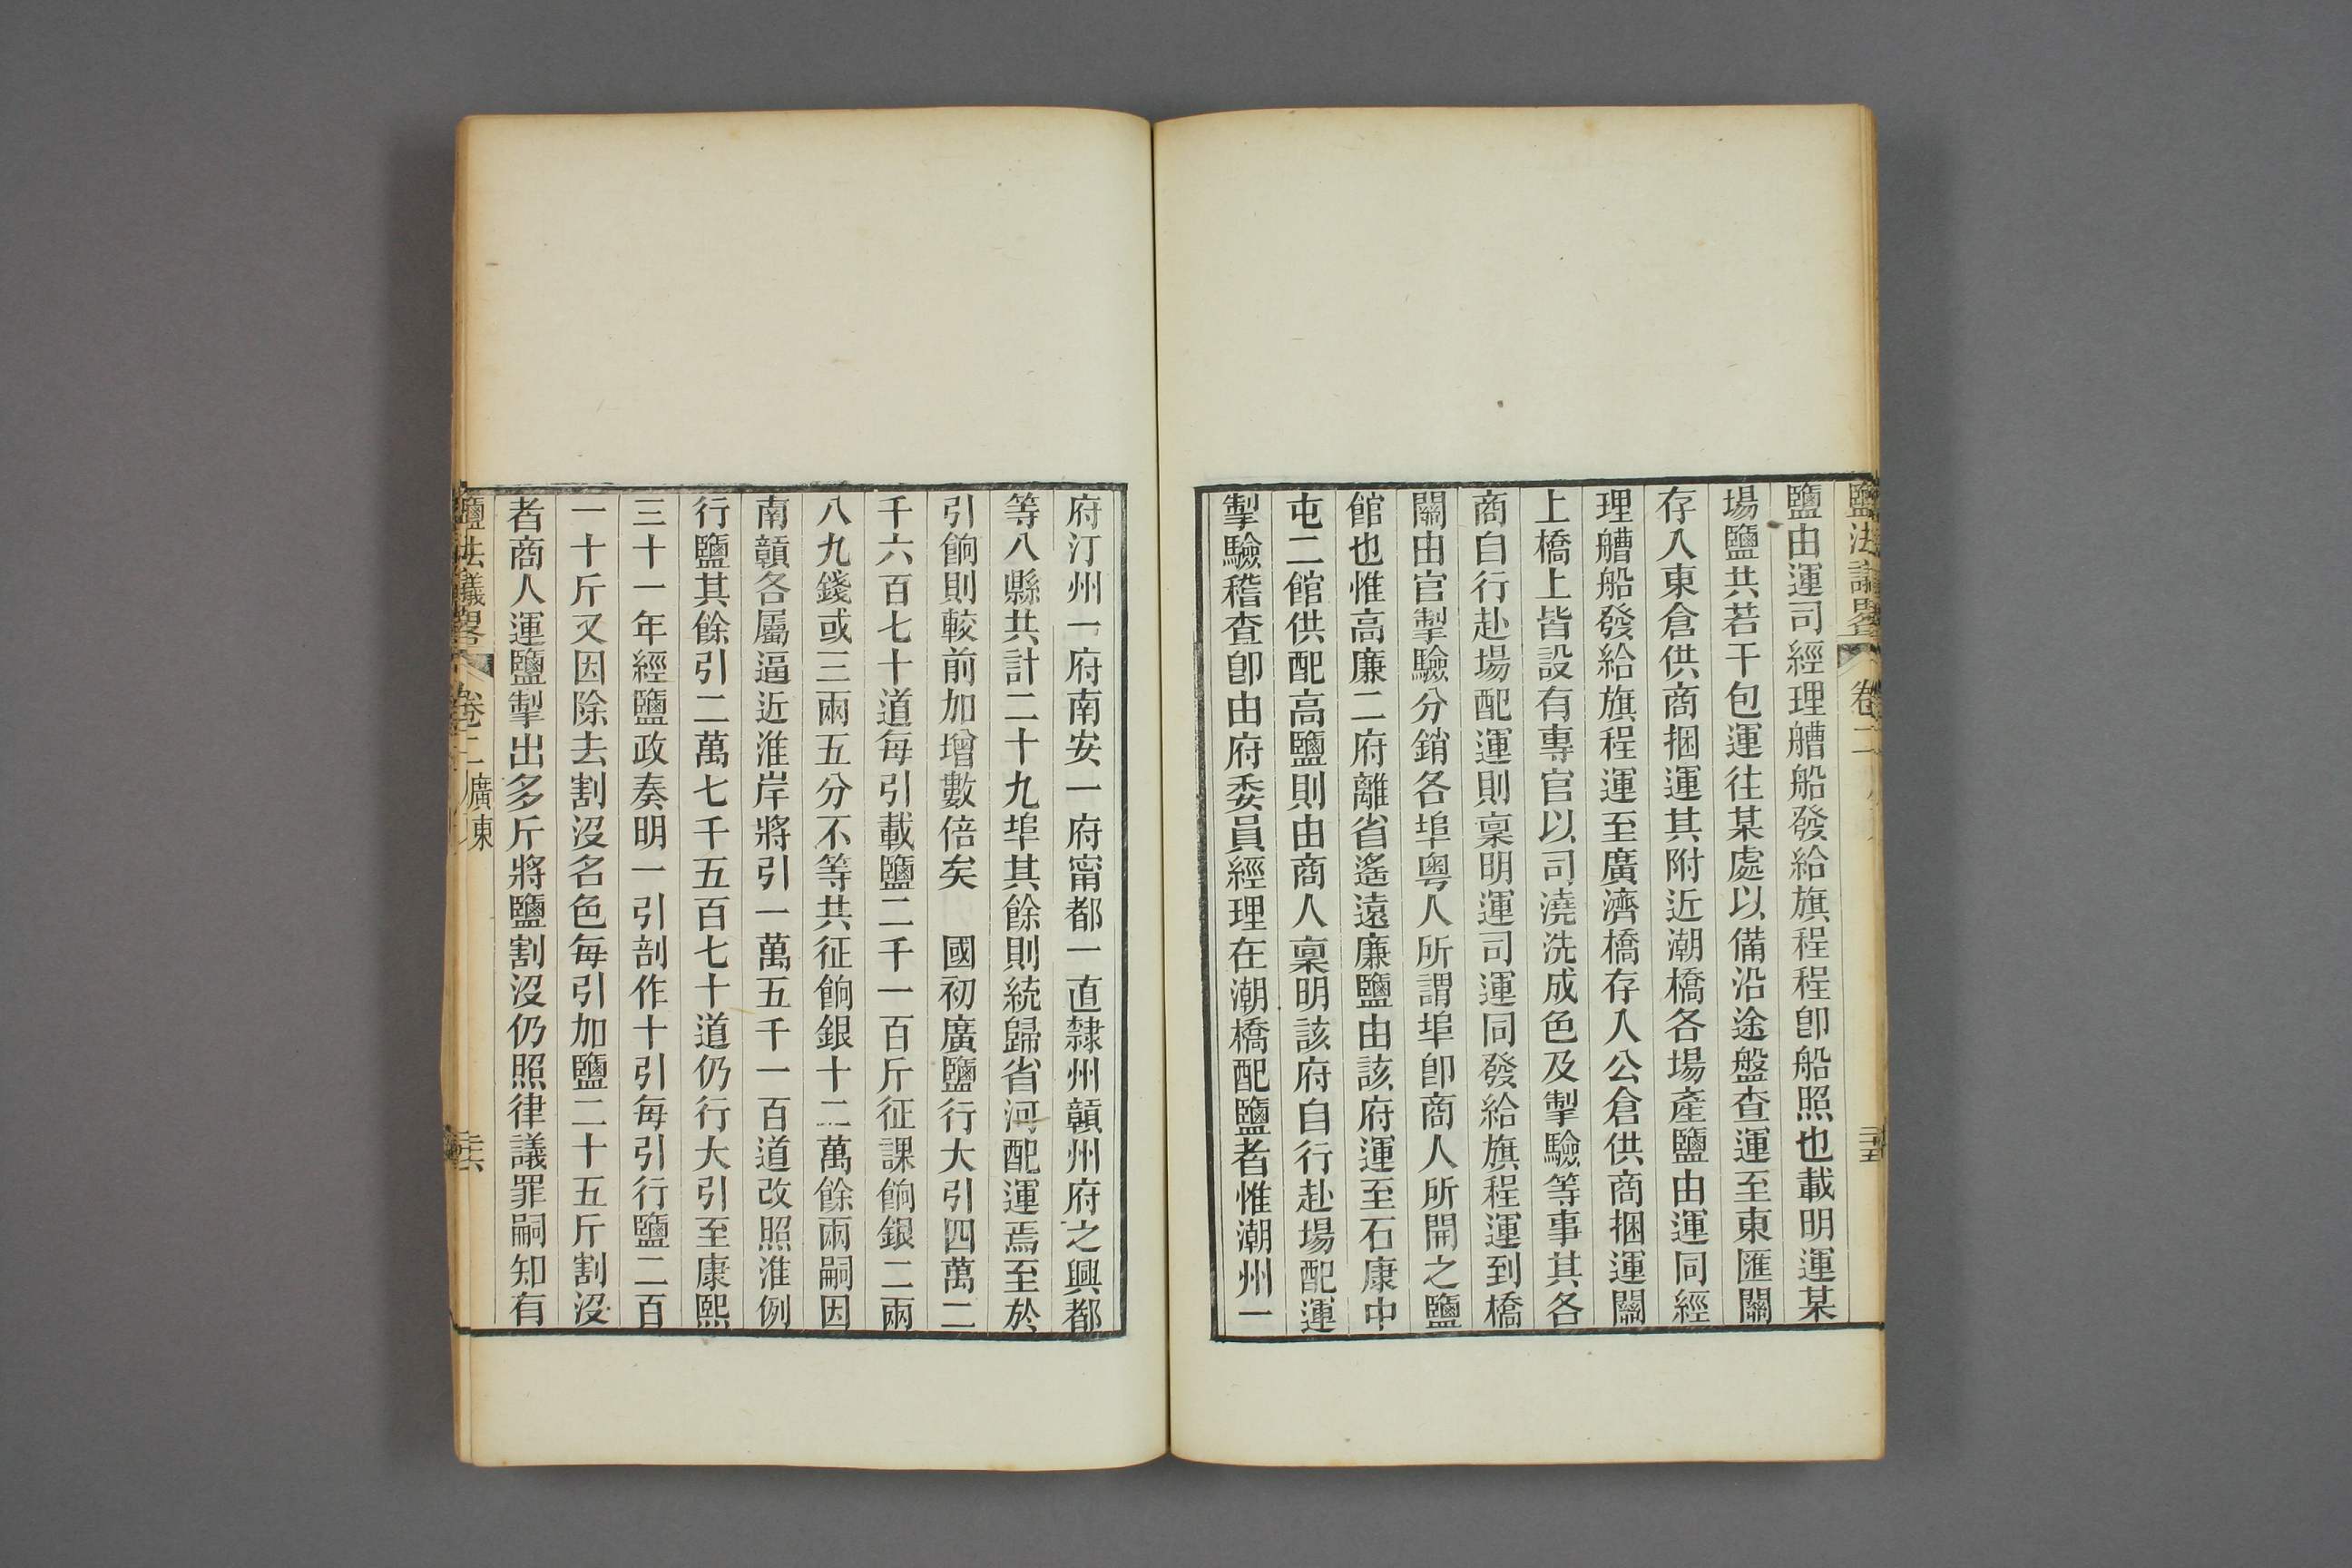 鹽法議畧 卷二
二十五
鹽由運司經理艚船發給旗程程卽船照也載明運某
場鹽共若干包運往某處以備沿途盤查運至東匯關
存入東倉供商捆運其附近潮橋各場產鹽由運同經
理艚船發給旗程運至廣濟橋存入公倉供商捆運關
上橋上皆設有專官以司澆洗成色及掣驗等事其各
商自行赴場配運則稟明運司運同發給旗程運到橋
關由官掣驗分銷各埠粵人所謂埠卽商人所開之鹽
館也惟高廉二府離省遙遠廉鹽由該府運至石康中
屯二館供配高鹽則由商人稟明該府自行赴場配運
掣驗稽查卽由府委員經理在潮橋配鹽者惟潮州一
府汀州一府南安一府甯都一直隸州贛州府之興都
等八縣共計二十九埠其餘則統歸省河配運焉至於
引餉則較前加增數倍矣　國初廣鹽行大引四萬二
千六百七十道每引載鹽二千一百斤征課餉銀二兩
八九錢或三兩五分不等共征餉銀十二萬餘兩嗣因
南贛各屬逼近淮岸將引一萬五千一百道改照淮例
行鹽其餘引二萬七千五百七十道仍行大引至康熙
三十一年經鹽政奏明一引剖作十引每引行鹽二百
一十斤又因除去割沒名色每引加鹽二十五斤割沒
者商人運鹽掣出多斤將鹽割沒仍照律議罪嗣知有
鹽法議畧 卷二 廣東
二十六